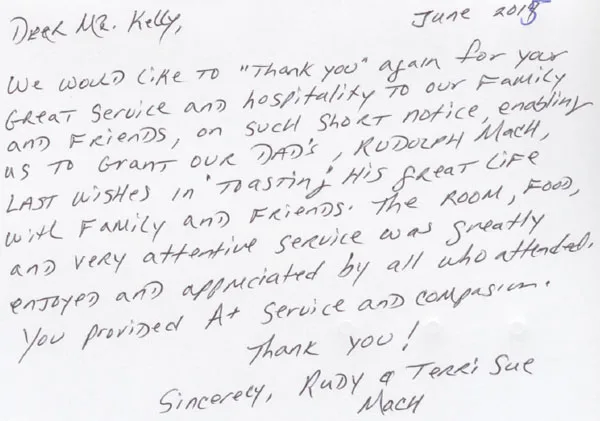 Dear Mr. Kelly, June 2018
We would like to "Thank you" again for your
Great service and hospitality to our Family
and Friends, on such short notice, enabling
us to Grant our DAD's, Rudolph Mach,
Last wishes in 'Toasting' His great Life
with Family and Friends. The Room, Food,
and very attentive service was greatly
enjoyed and appriciated by all who attended.
You provided A+ service and compasion.
Thank you!
Sincerely, Rudy & Terri Sue
Mach